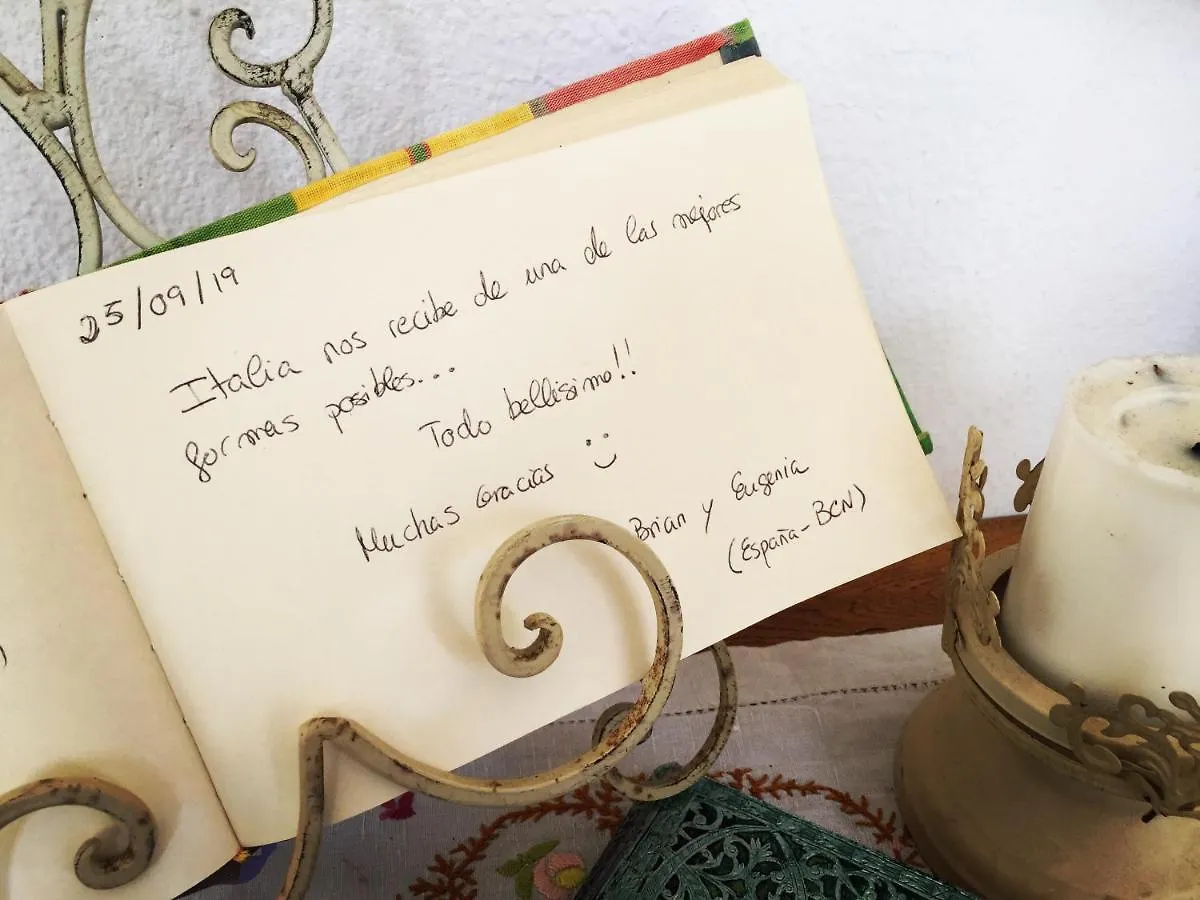 25/09/19
Italia nos recibe de una de las mejores
formas posibles...
Todo bellísimo!!
Muchas Gracias :)
Brian y Eugenia
(España-BCN)